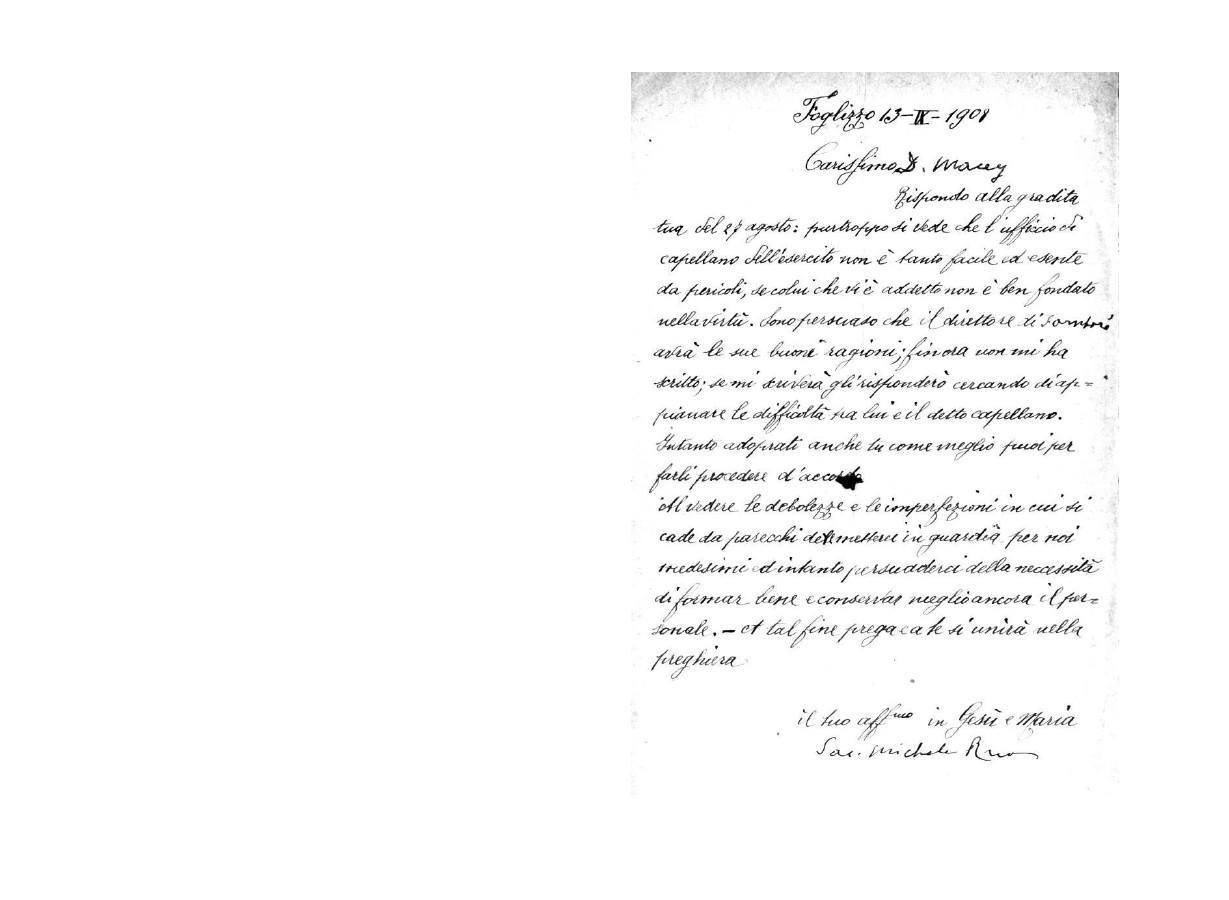 Foglizzo 13-IX-1908
Carissimo D. Macey
Rispondo alla gradita
tua del 27 agosto: purtroppo si vede che l'ufficio di
capellano dell'esercito non è tanto facile ed esente
da pericoli, se colui che vi è addetto non è ben fondato
nella virtù. Sono persuaso che il direttore di
avrà le sue buone ragioni; finora non mi ha
scritto; se mi scriverà gli risponderò cercando di ap=
pianare le difficoltà tra lui e il detto capellano.
Intanto adoprati anche tu come meglio puoi per
farli procedere d'accordo
Al vedere le debolezze e le imperfezioni in cui si
cade da parecchi deve metterci in guardia per noi
medesimi ed intanto persuaderci della necessità
di formar bene e conservar meglio ancora il per=
sonale. — A tal fine prega e a te si unirà nella
preghiera
il tuo aff.mo in Gesù e Maria
Sac. Michele Rua